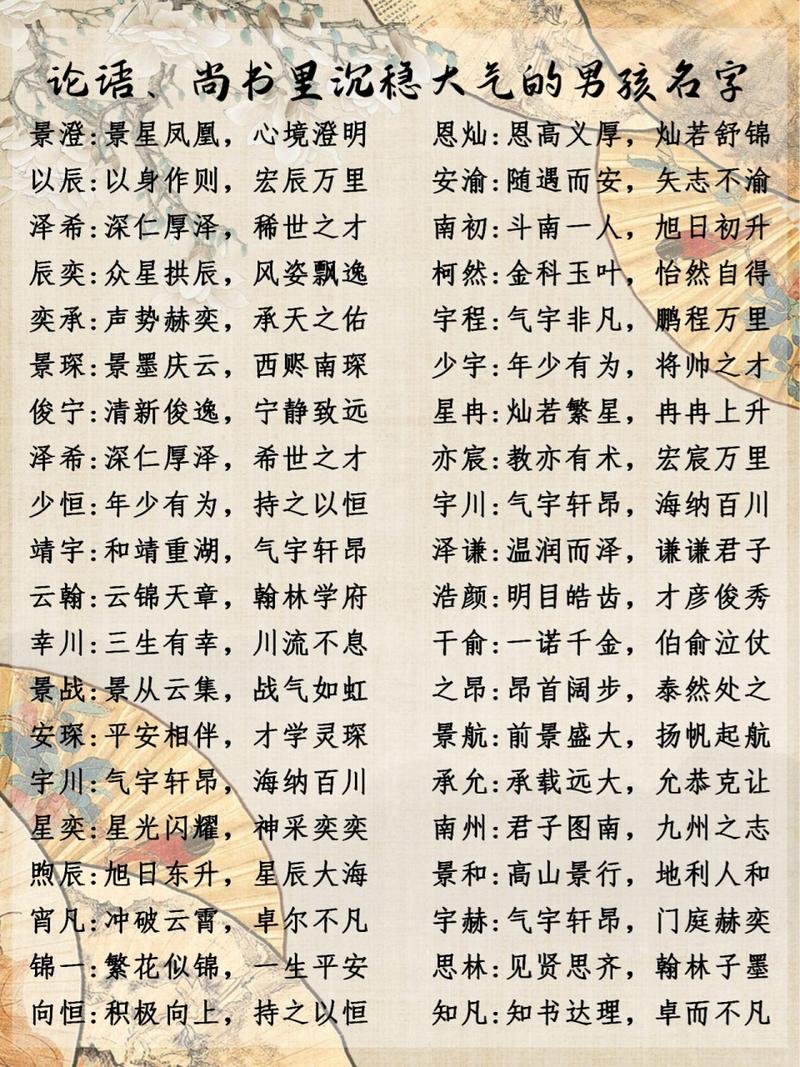 论语、尚书里沉稳大气的男孩名字
景澄:景星凤凰，心境澄明
以辰:以身作则，宏辰万里
泽希:深仁厚泽，稀世之才
辰奕:众星拱辰，风姿飘逸
奕承:声势赫奕，承天之佑
景琛:景墨庆云，西赆南琛
俊宁:清新俊逸，宁静致远
泽希:深仁厚泽，希世之才
少恒:年少有为，持之以恒
靖宇:和靖重湖，气宇轩昂
云翰:云锦天章，翰林学府
幸川:三生有幸，川流不息
景战:景从云集，战气如虹
安琛:平安相伴，才学灵琛
宇川:气宇轩昂，海纳百川
星奕:星光闪耀，神采奕奕
煦辰:旭日东升，星辰大海
宵凡:冲破云霄，卓尔不凡
锦一:繁花似锦，一生平安
向恒:积极向上，持之以恒
恩灿:恩高义厚，灿若舒锦
安渝:随遇而安，矢志不渝
南初:斗南一人，旭日初升
柯然:金科玉叶，怡然自得
宇程:气宇非凡，鹏程万里
少宇:年少有为，将帅之才
星冉:灿若繁星，冉冉上升
亦宸:教亦有术，宏宸万里
宇川:气宇轩昂，海纳百川
泽谦:温润而泽，谦谦君子
浩颜:明目皓齿，才彦俊秀
干俞:一诺千金，伯俞泣仗
之昂:昂首阔步，泰然处之
景航:前景盛大，扬帆起航
承允:承载远大，允恭克让
南州:君子图南，九州之志
景和:高山景行，地利人和
宇赫:气宇轩昂，门庭赫奕
思林:见贤思齐，翰林子墨
知凡:知书达理，卓而不凡